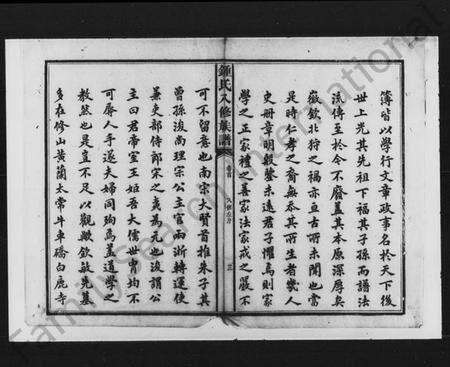 簿皆以學行文章政事名於天下後
世上光其先祖下福其子孫而譜法
流傳至於今不廢蓋其本原深厚矣
徽欽北狩之禍亦亘古所未聞也當
是時仁孝之裔無忝其所生者幾人
史冊章明殷鑒未遠君子懼焉則家
學之正家禮之善家法家戒之嚴不
鍾氏八修族譜
卷首
三
可不留意也南宋大賢首推朱子其
曾孫浚尚理宗公主官兩浙轉運使
兼吏部侍郎宋之
為元也浚謂公
主曰君帝室王姬吾大儒世胄均不
可辱人手遂夫婦同殉焉蓋道學之
教然也是豈不足以觀歟欽敏先墓
多在修山黃蘭太常牛車礄白鹿寺
FamilySearch International